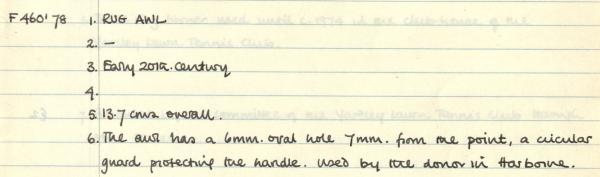 F460'78 1. RUG AWL
2. —
3. Early 20th. century
4.
5. 13.7 cms overall.
6. The awl has a 6mm. oval hole 7mm. from the point, a circular
guard protecting the handle. Used by the donor in Harborne.